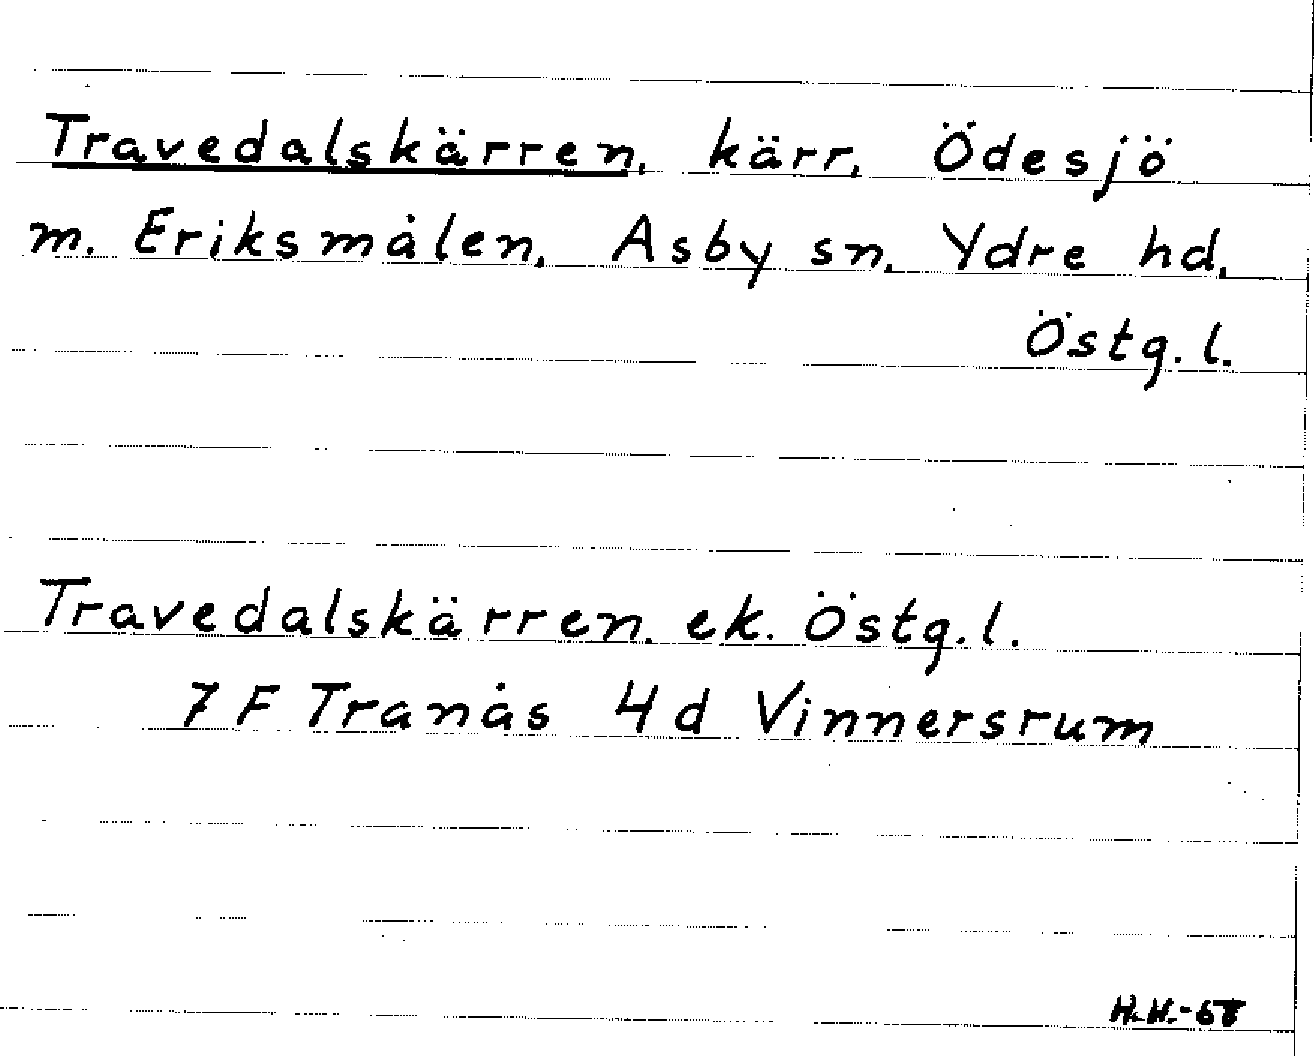 Travedalskärren, kärr, Ödesjö
m. Eriksmålen, Asby sn, Ydre hd,
Östg. l.
Travedalskärren. ek. Östg. l.
7 F Tranås 4d Vinnersrum